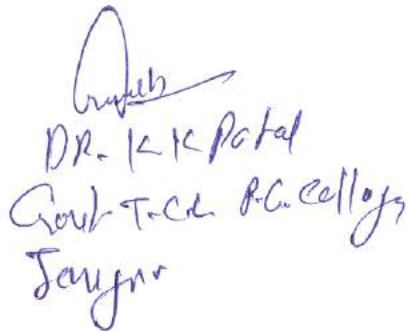 DR. K K Patel
Govt T.C.L. P.G. College
Janjgir